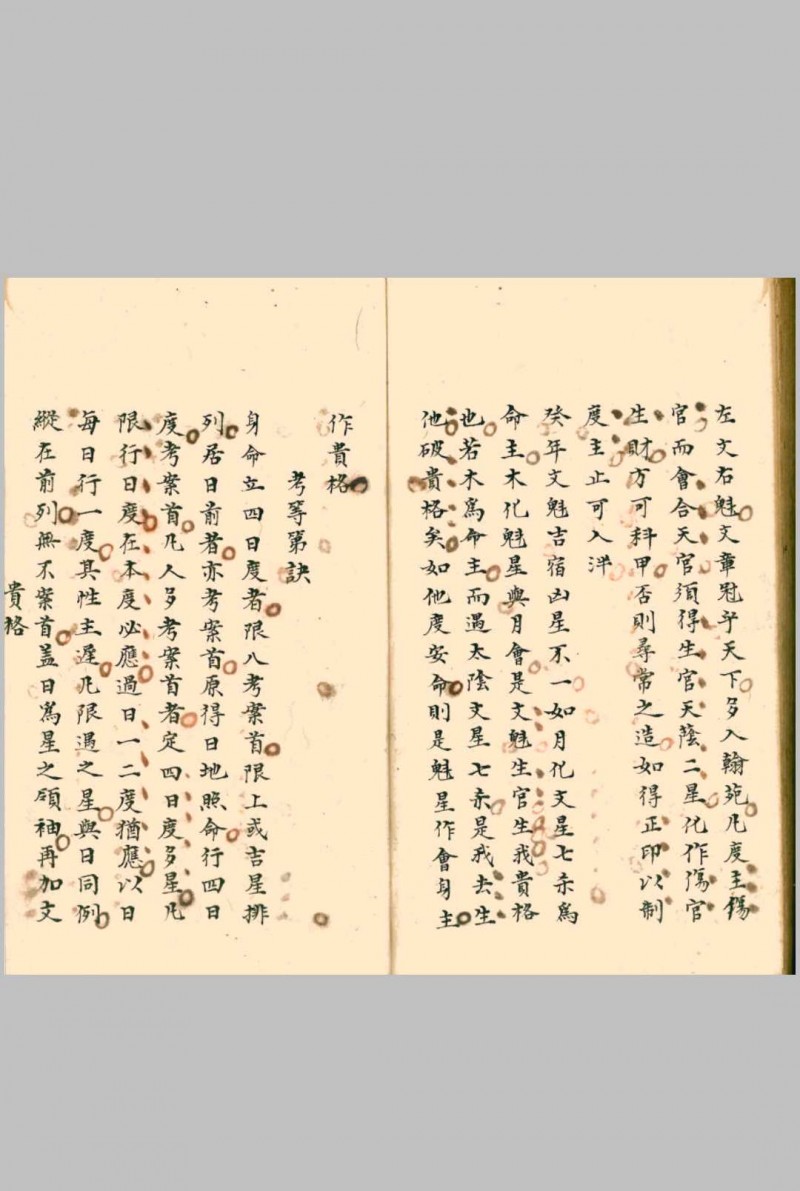 左文右魁文章冠乎天下多入翰苑凡度主傷
官而會合天官須得生官天蔭二星化作傷官
生財方可科甲否則尋常之造如得正印以制
度主止可入泮
癸年文魁吉宿凶星不一如月化文星七赤為
命主木化魁星與月會是文魁生官生我貴格
也若木為命主而遇太陰文星七赤是我去生
他破貴格矣如他度安命則是魁星作會身主
作貴格
考等第訣
身命立四日度者限入考案首限上或吉星排
列居日前者亦考案首原得日地照命行四日
度考案首凡人多考案首者定四日度多星凡
限行日度在本度必應過日一二度猶應以日
每日行一度其性主遲凡限遇之星與日同例
縱在前列無不案首蓋日為星之領袖再加文
貴格